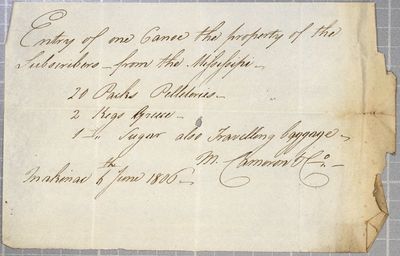 Entry of one Canoe the property of the
Subscribers – from the Missisipi –
20 Packs Pelleteries –
2 Kegs Grease –
1 Do. Sugar also Travelling Baggage –
M. Cameron & Co. –
Makinac 6th June 1806 –